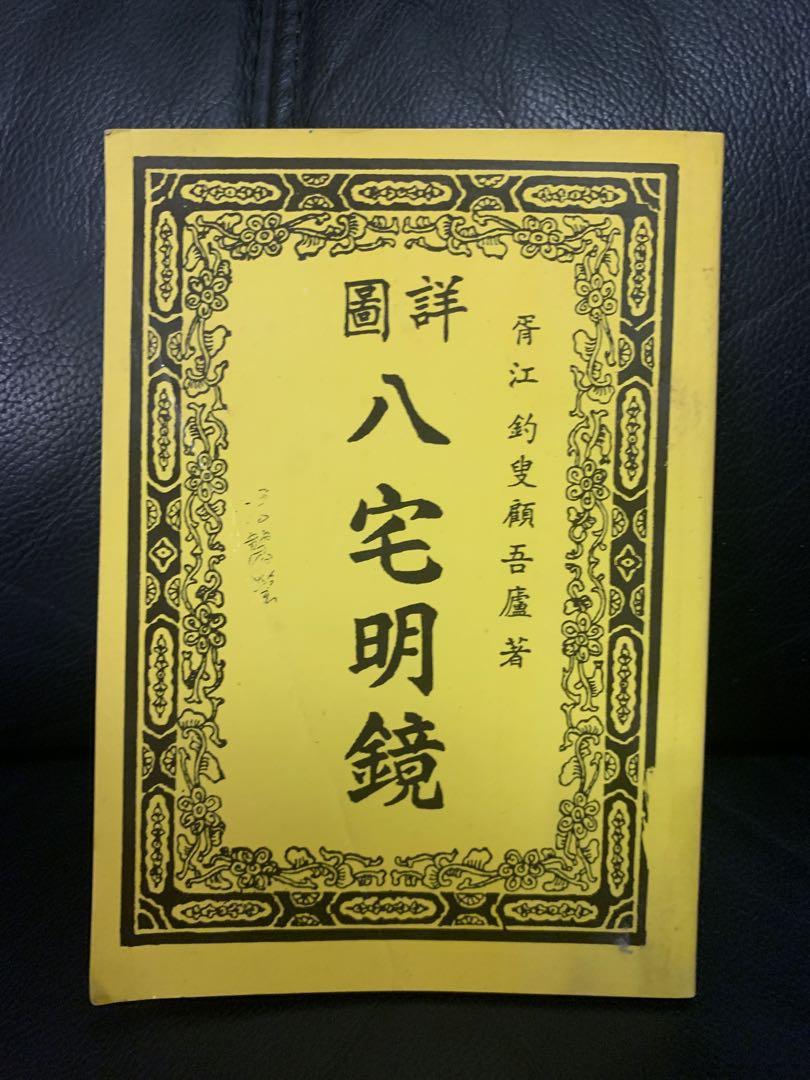 胥江釣叟顧吾廬著
詳圖
八宅明鏡